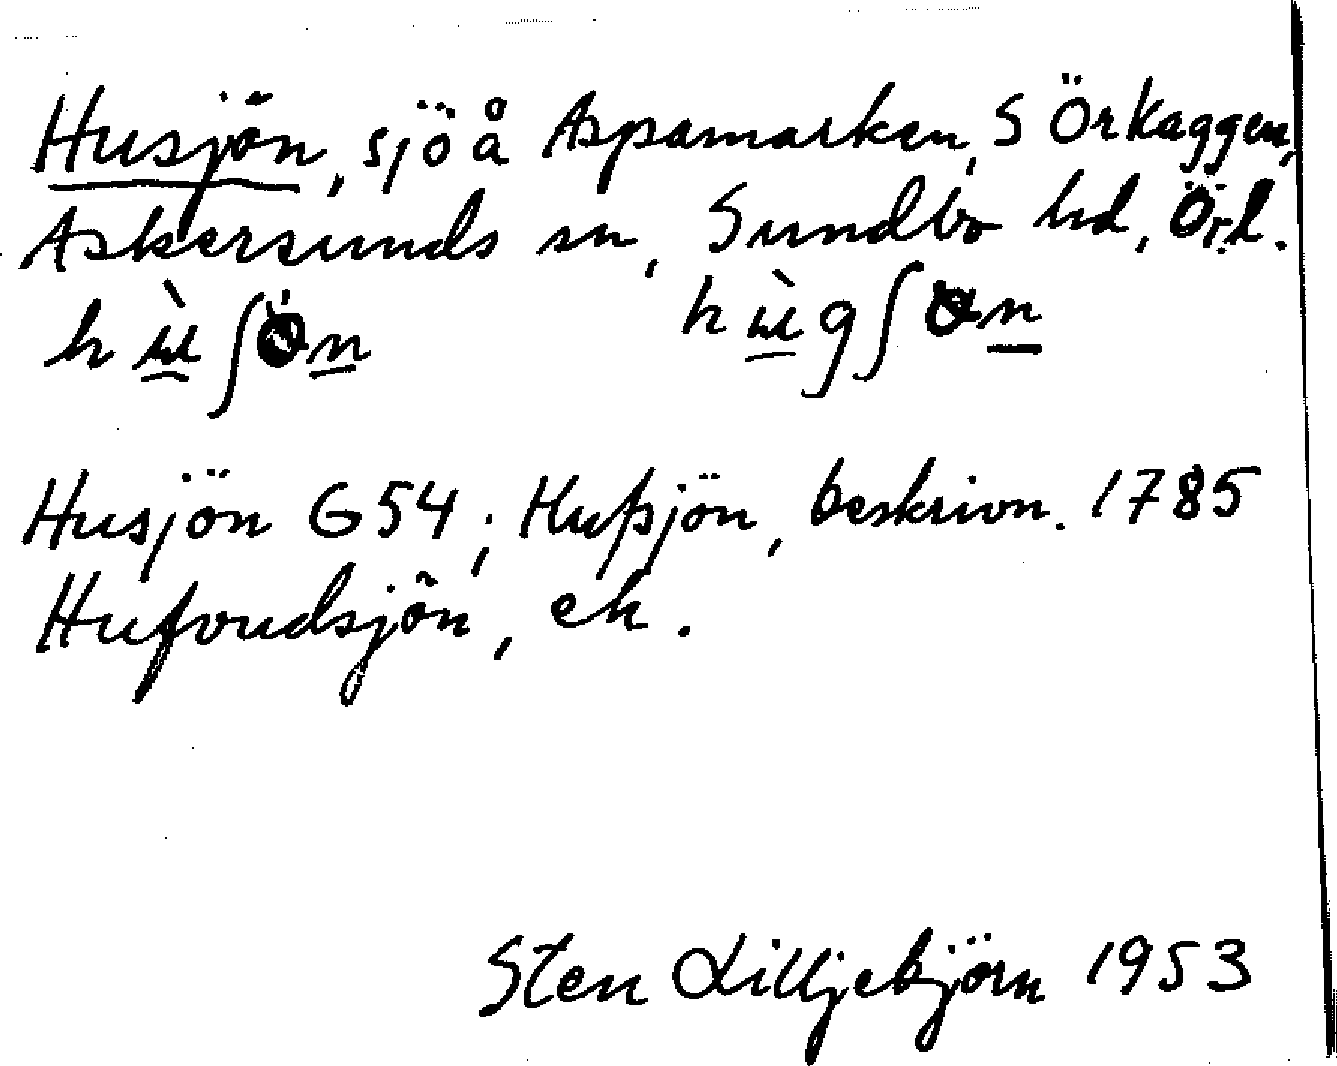 Husjön, sjö å Aspamarken, S Örkaggen,
Askersunds sn, Sundbo hd, Örl.
Husjön G54; Hufsjön, beskrivn. 1785
Hufvudsjön, ek.
Sten Lilljebjörn 1953